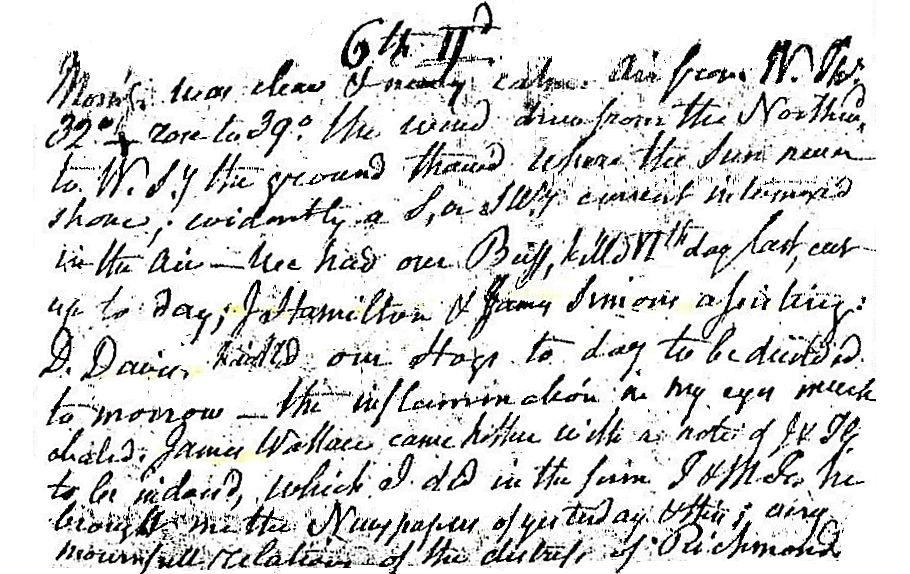 6th IId
Morng. was clear & nearly calm. Air from W. Thr.
32° — rose to 39° the wind drew from the Northwd.
to W. S.y the ground thawd where the Sun never
shone; evidently a S, or SWy current intermixd
in the Air — We had our Beef, killd VIth day last, cut
up to day; J. Hamilton & James Simions assisting:
D. Davis killd our Hogs to day to be divided
to morrow — the inflammation in my eyes much
abated. James Wallace came hither with a note of J & To
to be indorsd, which I did in the firm I & M. he
brought me the Newspapers of yesterday & this;
mournfull relations of the distress of Richmond